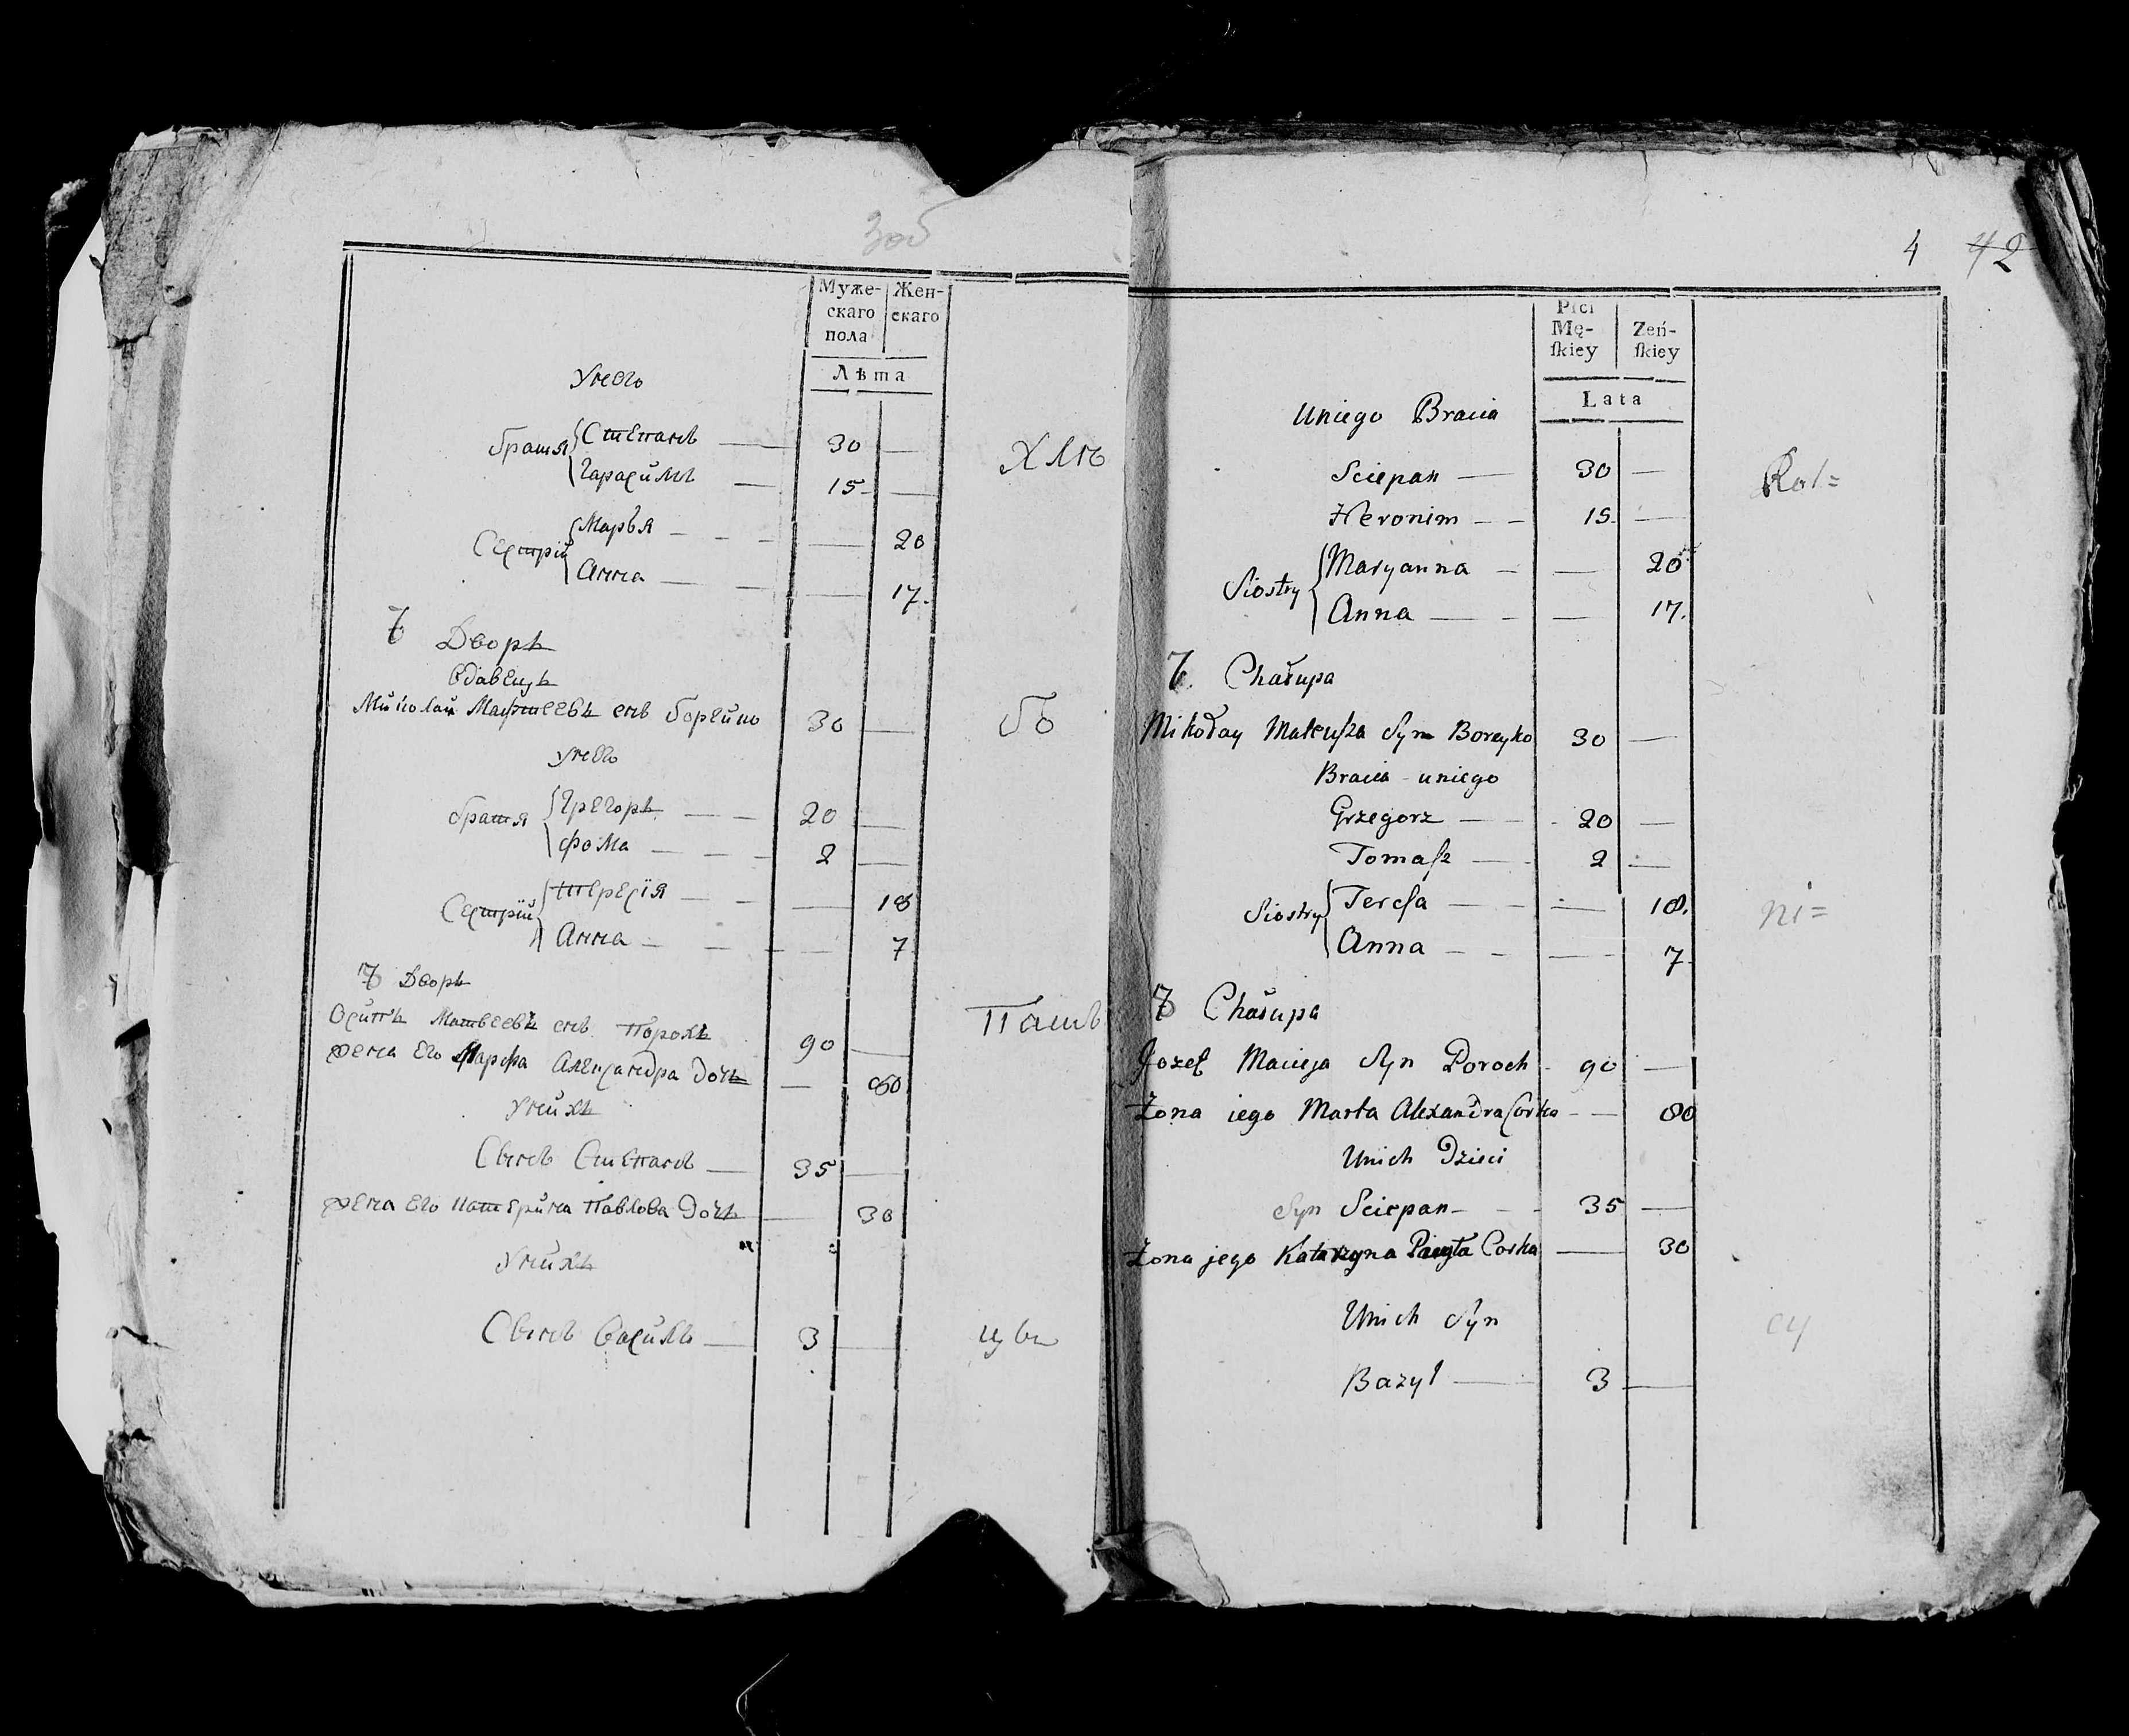 3об
Муже-
скаго
пола
Жен-
скаго
Лѣта
Унего
братя Степанъ — 30 —
Гарасимъ — 15 —
Сестрй Марья — — 20
Анна — — 17.
7 Дворъ
вдавецъ
Миколай Матфеевъ снъ борейко 30 —
унего
братя Грегоръ — 20 —
фома — 2 —
Сестрй Тересія — — 18
Анна — — 7
7 Дворъ
Осипъ Матвеевъ снъ Порохъ 90 —
жена Его Марфа Александра дочь — 80
Унихъ
Сынъ Степанъ — 35 —
жена Его Катерина Павлова дочь — 30
Унихъ
Сынъ Василь — 3 —
Хлѣ
бо
Паш
цы
4 42
Płci
Mę-
ſkiey
Zeń-
ſkiey
Lata
Uniego Bracia
Sciepan — 30 —
Heronim — 15. —
Siostry Maryanna — — 20
Anna — — 17.
7. Chałupa
Mikołay Mateuſza Syn Boreyko 30 —
Bracia uniego
Grzegorz — 20 —
Tomaſz — 2 —
Siostry Tereſa — — 18.
Anna — — 7.
7 Chałupa
Jozef Macieja Syn Poroch 90 —
Żona iego Marta Alexandra Corka — 80
Unich Dzieci
Syn Sciepan — 35 —
Żona jego Katarzyna Pawła Corka — 30
Unich Syn
Bazyl — 3 —
Rol=
ni=
cy